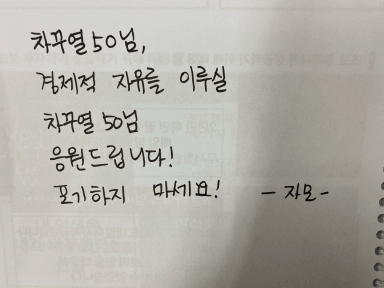 차꾸열50님,
경제적 자유를 이루실
차꾸열 50님
응원드립니다!
포기하지 마세요! - 자모 -